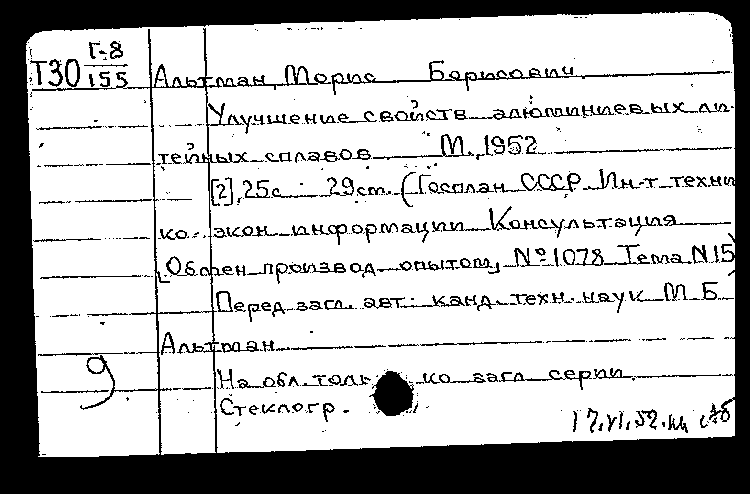 Г-8
Т30 155 Альтман, Морис Борисович.
Улучшение свойств алюминиевых ли-
тейных сплавов М., 1952
[2], 25с 29ст. (Госплан СССР. Ин-т техни
ко-экон информации Консультация
[Обмен производ. опытом, № 1078 Тема N 15)
Перед загл. авт.: канд. техн. наук М. Б
Альтман
9 На обл. толь ко загл серии.
Стеклогр.
17.VI.52.